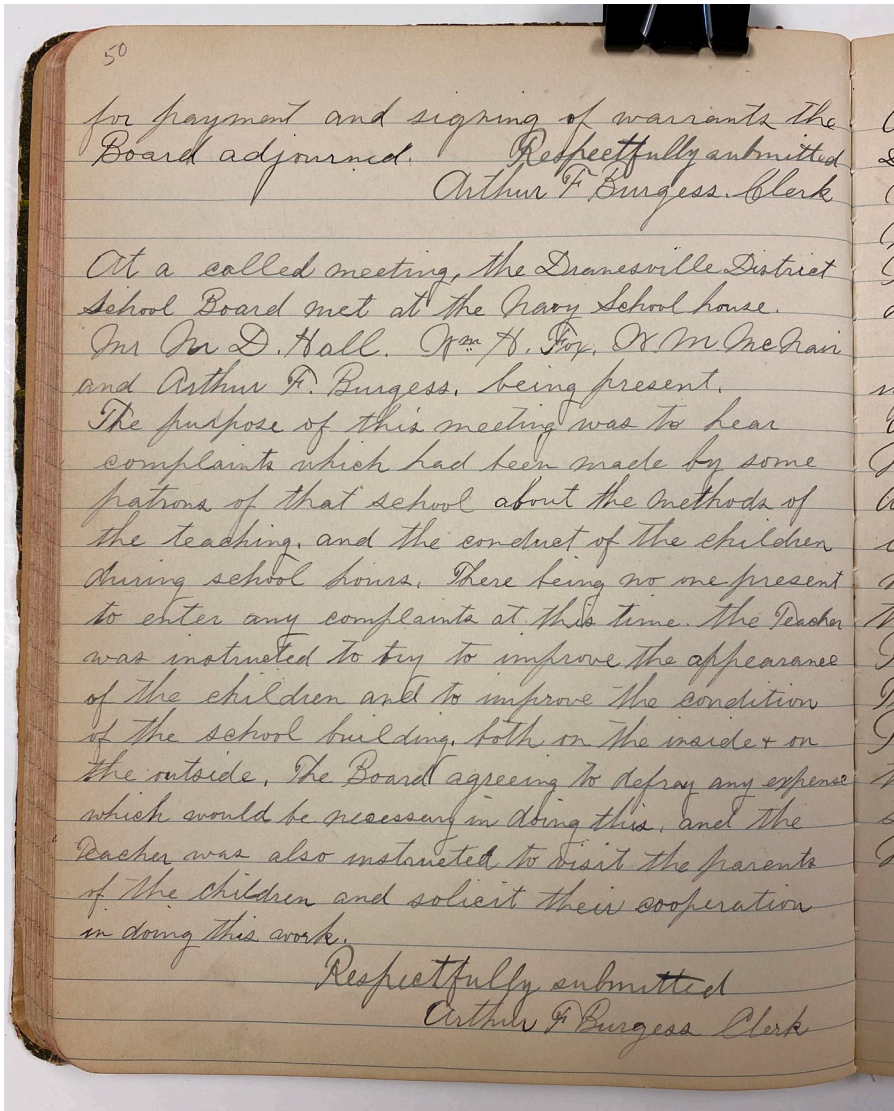 50
for payment and signing of warrants the
Board adjourned. Respectfully submitted
Arthur F Burgess. Clerk
At a called meeting, the Dranesville District
School Board met at the Navy School house.
Mr M D. Hall. Wm H. Fox. W. M McNair
and Arthur F. Burgess. being present.
The purpose of this meeting was to hear
complaints which had been made by some
patrons of that school about the methods of
the teaching, and the conduct of the children
during school hours. There being no one present
to enter any complaints at this time. the Teacher
was instructed to try to improve the appearance
of the children and to improve the condition
of the school building, both on the inside + on
the outside. The Board agreeing to defray any expense
which would be necessary in doing this, and the
Teacher was also instructed to visit the parents
of the children and solicit their cooperation
in doing this work.
Respectfully submitted
Arthur F Burgess Clerk